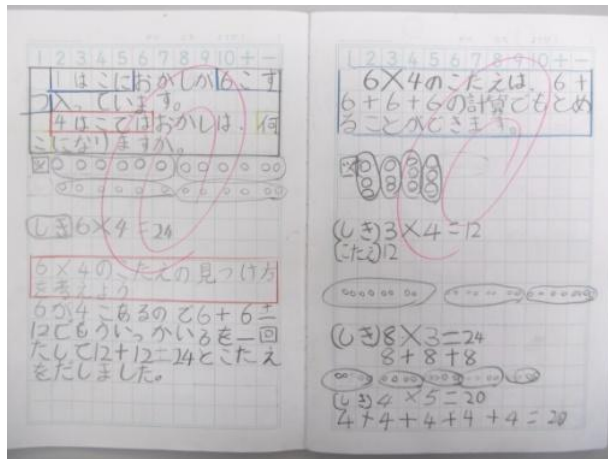 1 2 3 4 5 6 7 8 9 10 + −
1はこにおかしが6こず
つ入っています。
4はこではおかしは、何
こになりますか。
図
しき 6×4=24
6×4のこたえの見つけ方
を考えよう
6が4こあるので6+6=
12でもういっかいるを一回
たして12+12=24とこたえ
をだしました。
1 2 3 4 5 6 7 8 9 10 + −
6×4のこたえは、6+
6+6+6の計算でもとめ
ることができます。
図
(しき)3×4=12
(こたえ)12
(しき)8×3=24
8+8+8
(しき)4×5=20
4+4+4+4+4=20